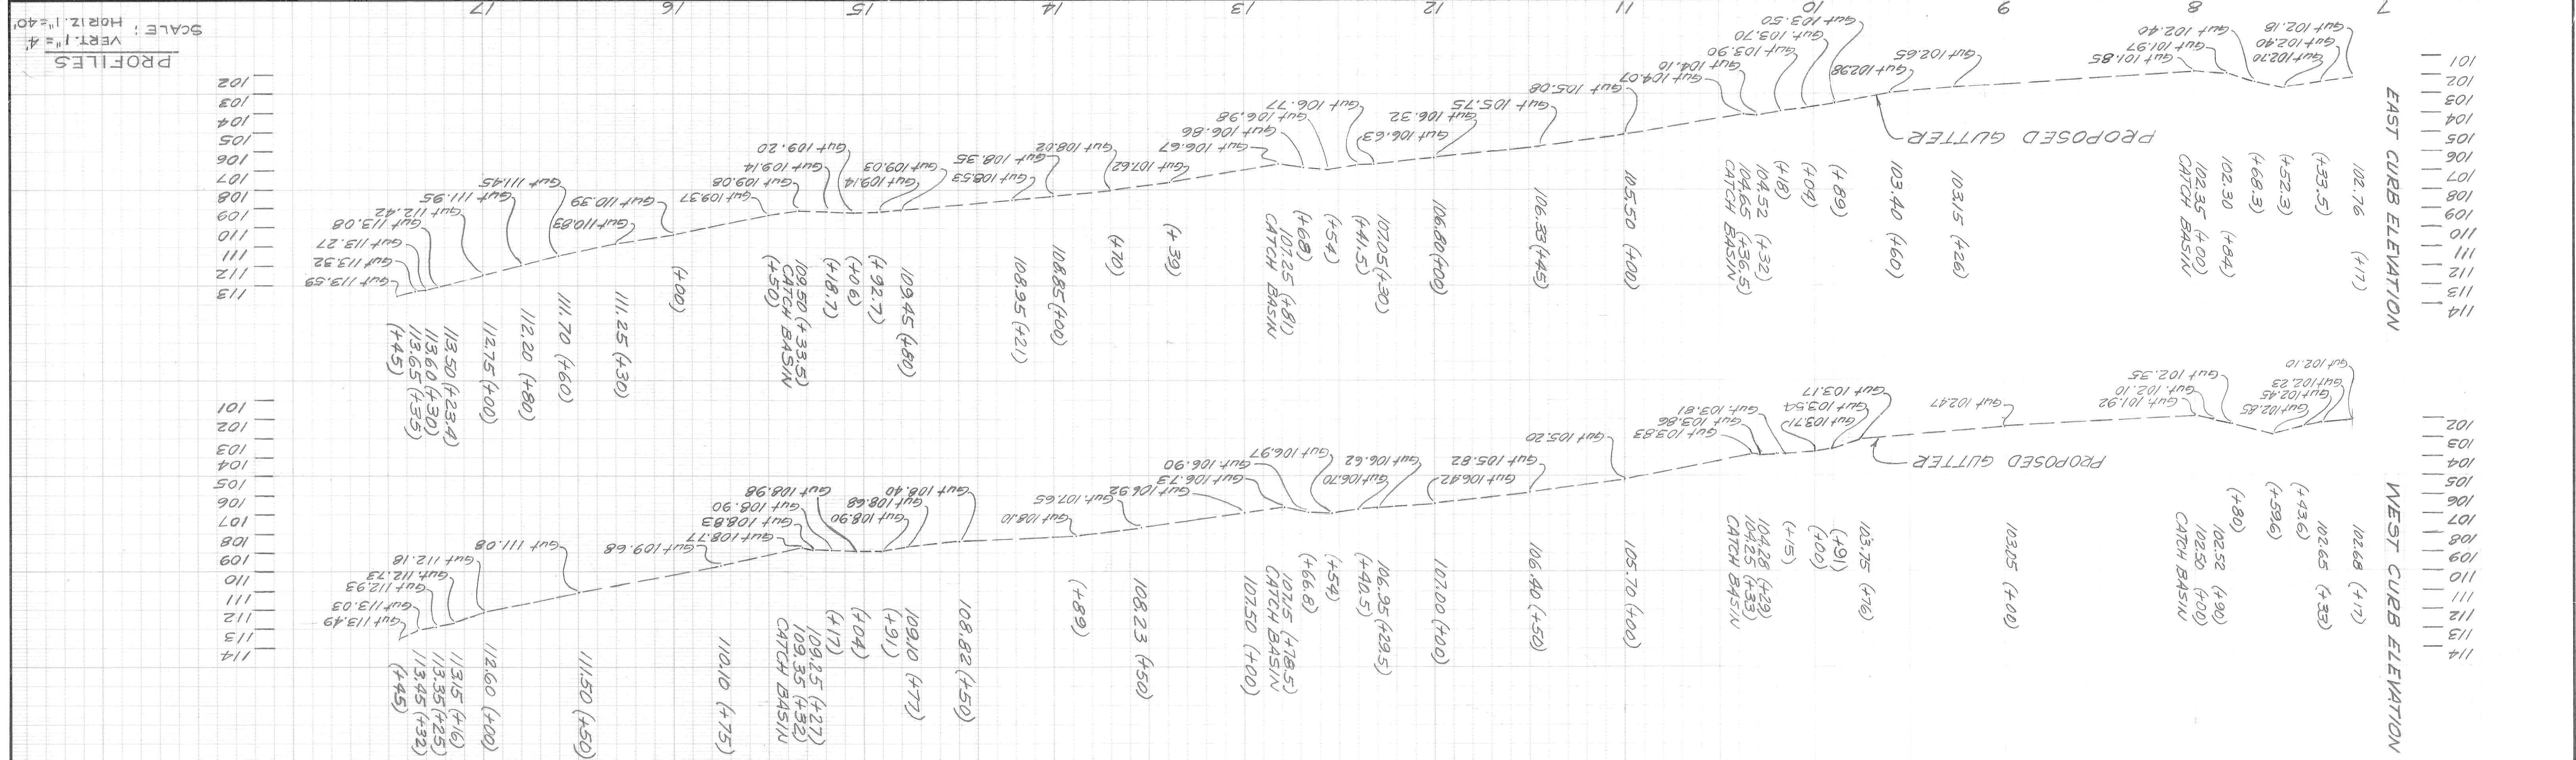 PROFILES
SCALE: VERT. 1"=4'
HORIZ. 1"=40'
7
8
9
10
11
12
13
14
15
16
17
EAST CURB ELEVATION
101
102
103
104
105
106
107
108
109
110
111
112
113
114
102
103
104
105
106
107
108
109
110
111
112
113
PROPOSED GUTTER
Gut 102.18
Gut 102.40
Gut 102.70
Gut 102.40
Gut 101.97
Gut 101.85
Gut 102.65
Gut 102.98
Gut 103.50
Gut. 103.70
Gut 103.90
Gut 104.10
Gut 104.07
Gut 105.08
Gut 105.75
Gut 106.32
Gut 106.63
Gut 106.77
Gut 106.98
Gut 106.86
Gut 106.67
Gut 107.62
Gut 108.02
Gut 108.35
Gut 108.53
Gut 109.03
Gut 109.14
Gut 109.20
Gut 109.14
Gut 109.08
Gut 109.37
Gut 110.39
Gut 110.83
Gut 111.45
Gut 111.95
Gut 112.42
Gut 113.08
Gut 113.27
Gut 113.32
Gut 113.59
102.76 (+17)
(+33.5)
(+52.3)
(+68.3)
102.30 (+84)
102.35 (+00)
CATCH BASIN
103.15 (+26)
103.40 (+60)
(+89)
(+04)
(+18)
104.52 (+32)
104.65 (+36.5)
CATCH BASIN
105.50 (+00)
106.33 (+45)
106.80 (+00)
107.05 (+30)
(+41.5)
(+54)
(+68)
107.25 (+81)
CATCH BASIN
(+39)
(+70)
108.85 (+00)
108.95 (+21)
109.45 (+80)
(+92.7)
(+06)
(+18.7)
109.50 (+33.5)
CATCH BASIN
(+50)
(+00)
111.25 (+30)
111.70 (+60)
112.20 (+80)
112.75 (+00)
113.50 (+23.4)
113.60 (+30)
113.65 (+35)
(+45)
WEST CURB ELEVATION
102
103
104
105
106
107
108
109
110
111
112
113
114
101
102
103
104
105
106
107
108
109
110
111
112
113
114
PROPOSED GUTTER
Gut 102.10
Gut 102.23
Gut 102.45
Gut 102.85
Gut 102.35
Gut. 102.10
Gut. 101.92
Gut 102.47
Gut 103.17
Gut 103.54
Gut 103.71
Gut. 103.81
Gut 103.86
Gut 103.83
Gut 105.20
Gut 105.82
Gut 106.42
Gut 106.62
Gut 106.70
Gut 106.97
Gut. 106.90
Gut 106.73
Gut 106.92
Gut. 107.65
Gut 108.10
Gut 108.40
Gut 108.68
Gut 108.90
Gut 108.98
Gut 108.90
Gut 108.83
Gut 108.77
Gut 109.68
Gut 111.08
Gut 112.18
Gut. 112.73
Gut 112.93
Gut 113.03
Gut 113.49
102.68 (+17)
102.65 (+33)
(+43.6)
(+59.6)
(+80)
102.52 (+90)
102.50 (+00)
CATCH BASIN
103.05 (+00)
103.75 (+76)
(+91)
(+00)
(+15)
104.28 (+29)
104.25 (+33)
CATCH BASIN
105.70 (+00)
106.40 (+50)
107.00 (+00)
106.95 (+29.5)
(+40.5)
(+54)
(+66.8)
107.15 (+78.5)
CATCH BASIN
107.50 (+00)
108.23 (+50)
(+89)
108.82 (+50)
109.10 (+77)
(+91)
(+04)
(+17)
109.25 (+27)
109.35 (+32)
CATCH BASIN
110.10 (+75)
111.50 (+50)
112.60 (+00)
113.15 (+16)
113.35 (+25)
113.45 (+32)
(+45)